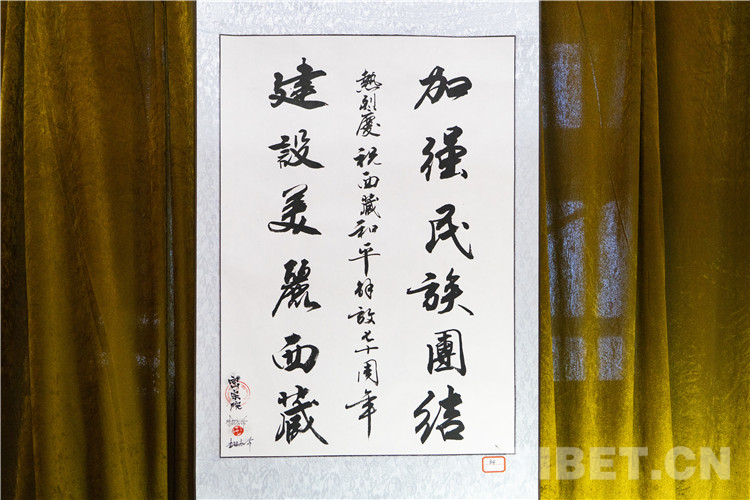 加强民族團结
熱烈慶祝西藏和平解放七十周年
建設美麗西藏
IBET.CN